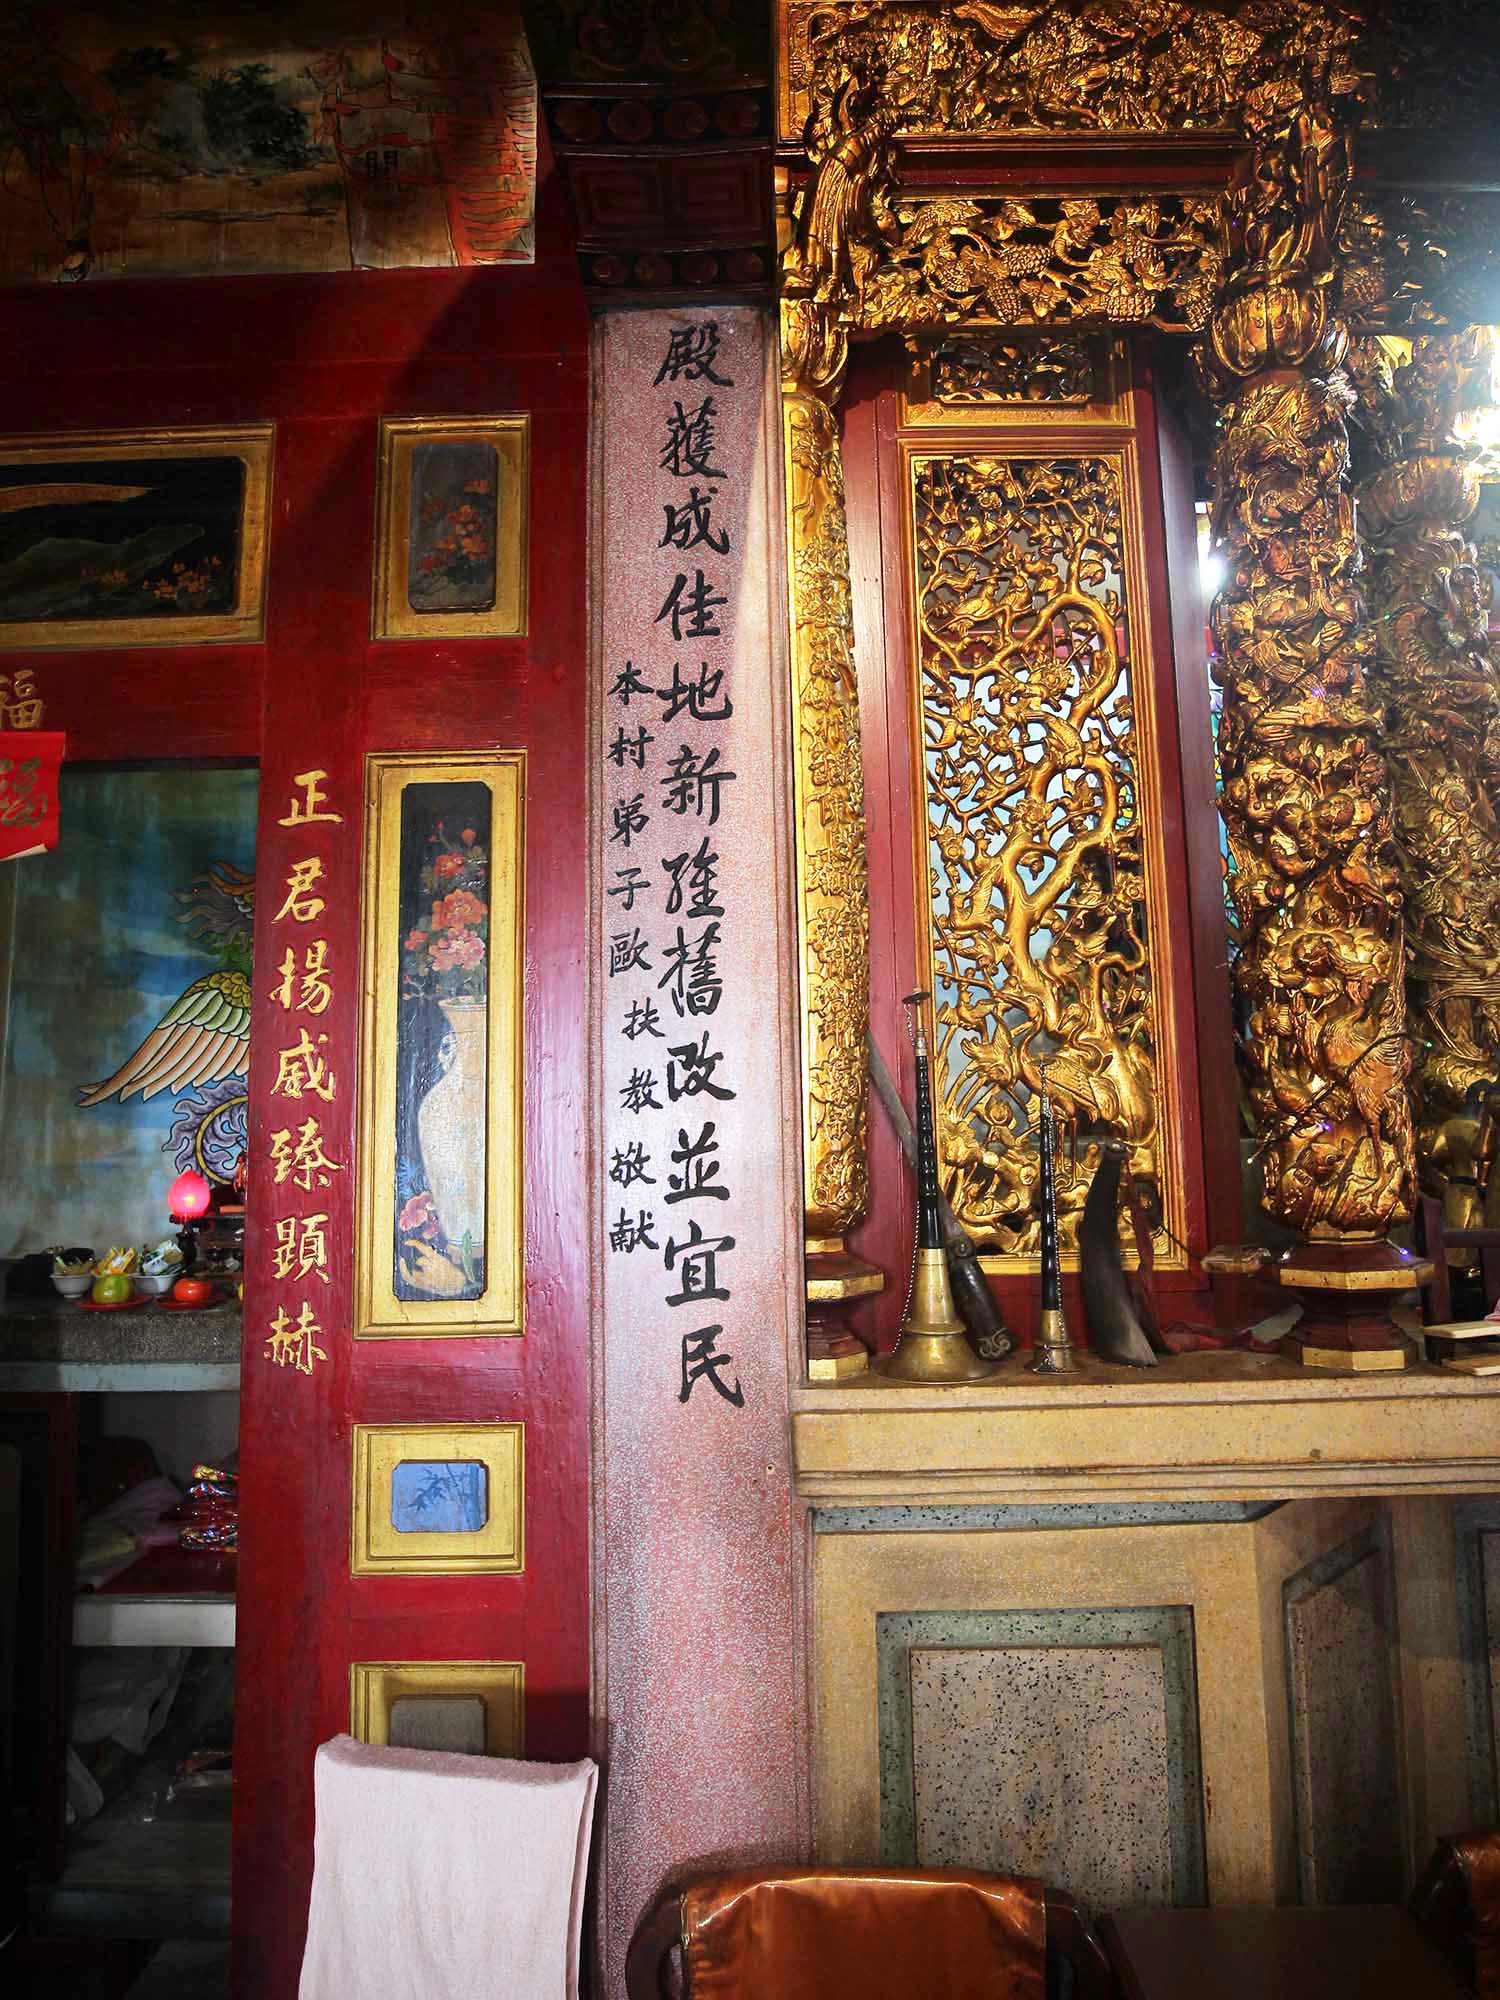 殿獲成佳地新雖舊改並宜民
本村弟子歐扶教敬献
正君揚威臻顕赫
福
福